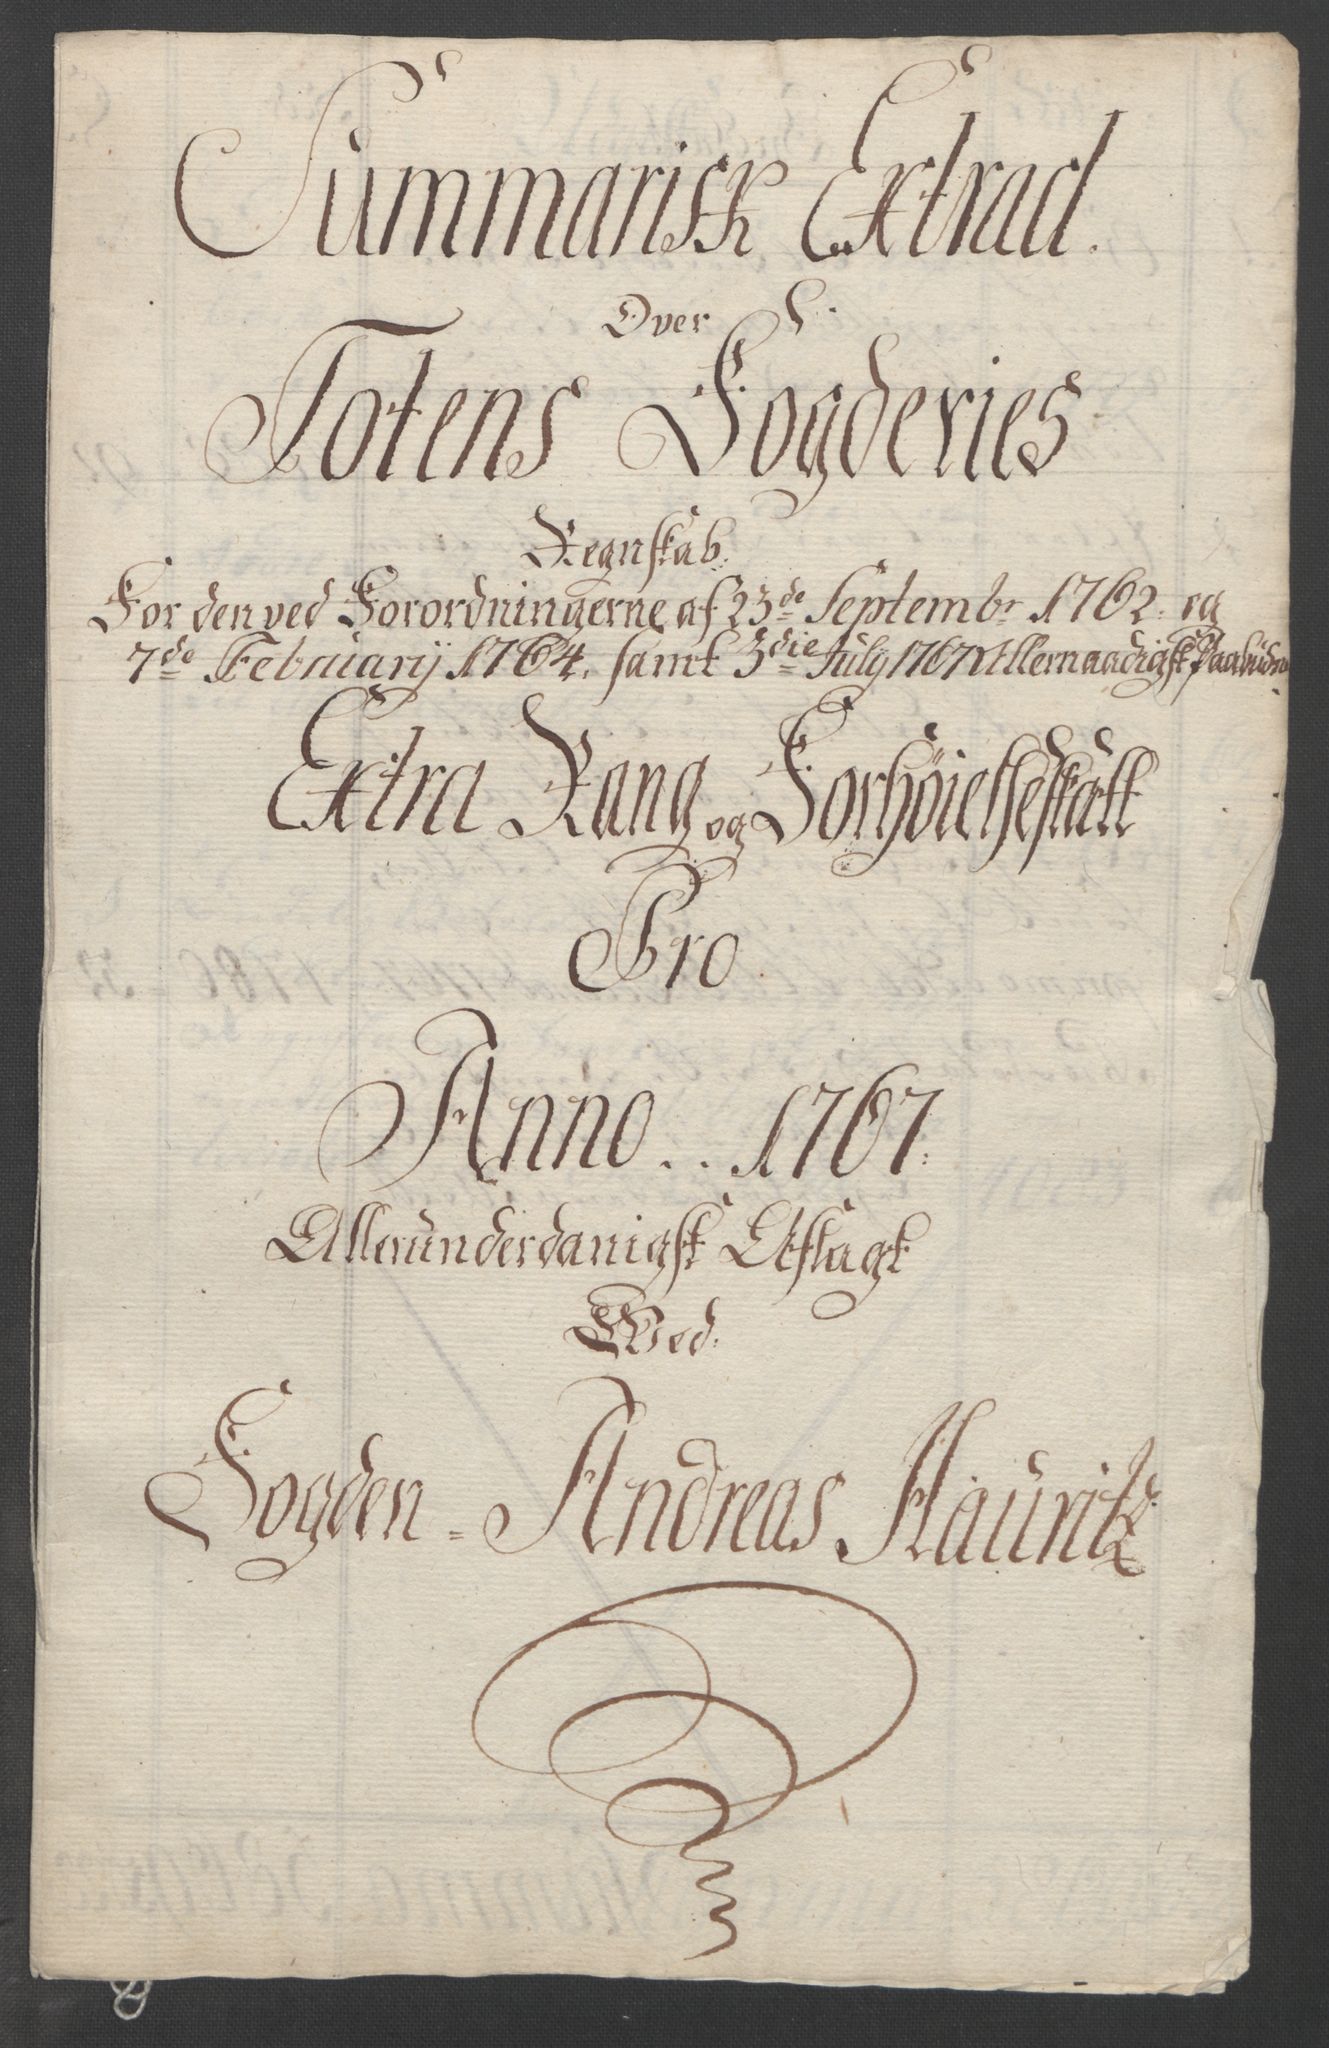 Summarisk Extract.
Over
Totens Fogderies
Regnskab.
For den ved Forordningerne af 23de Septembr 1762. og
7de Februarij 1764. samt 3die July 1767 Allernaadigst Paabudne
Extra Rang og Forhøielseskatt
Pro
Anno .. 1767.
Allerunderdanigst Aflagt
Wed.
Fogden = Andreas Hauritz